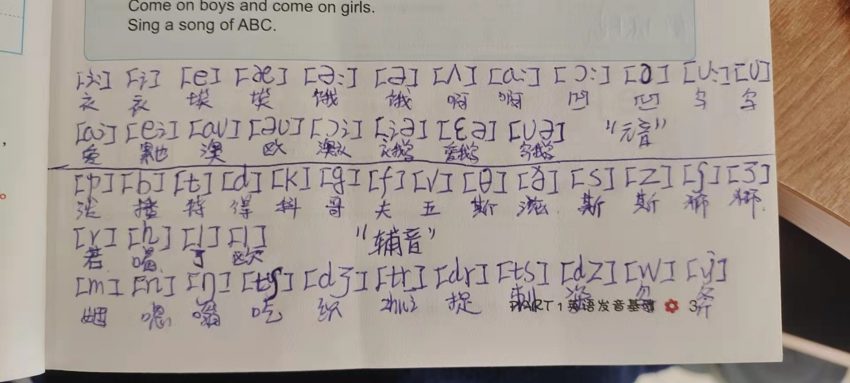 Come on boys and come on girls.
Sing a song of ABC.
[i:] [i] [e] [æ] [ə:] [ə] [ʌ] [ɑ:] [ɔ:] [ɔ] [u:] [u]
衣 衣 埃 埃 饿 饿 啊 啊 凹 凹 乌 乌
[ai] [ei] [au] [əu] [ɔi] [iə] [ɛə] [uə] "元音"
爱 澳 欧 澳衣 衣鹅
[p] [b] [t] [d] [k] [g] [f] [v] [θ] [ð] [s] [z] [ʃ] [ʒ]
播 特 得 科 哥 夫 五 斯 滋 斯 斯 狮 狮
[r] [h] [l] [l] "辅音"
若 喝 了 欧
[m] [n] [ŋ] [tʃ] [dʒ] [tr] [dr] [ts] [dz] [w] [j]
姆 嗯 嗡 吃 织 捉 刺
PART 1 英语发音基础 3